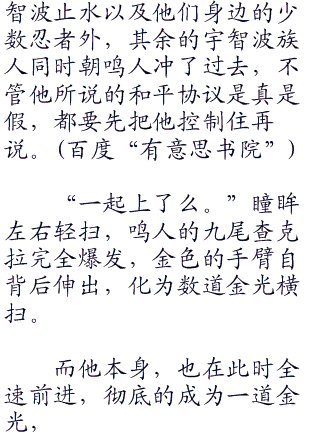 智波止水以及他们身边的少
数忍者外，其余的宇智波族
人同时朝鸣人冲了过去，不
管他所说的和平协议是真是
假，都要先把他控制住再
说。(百度“有意思书院”)
“一起上了么。”瞳眸
左右轻扫，鸣人的九尾查克
拉完全爆发，金色的手臂自
背后伸出，化为数道金光横
扫。
而他本身，也在此时全
速前进，彻底的成为一道金
光，